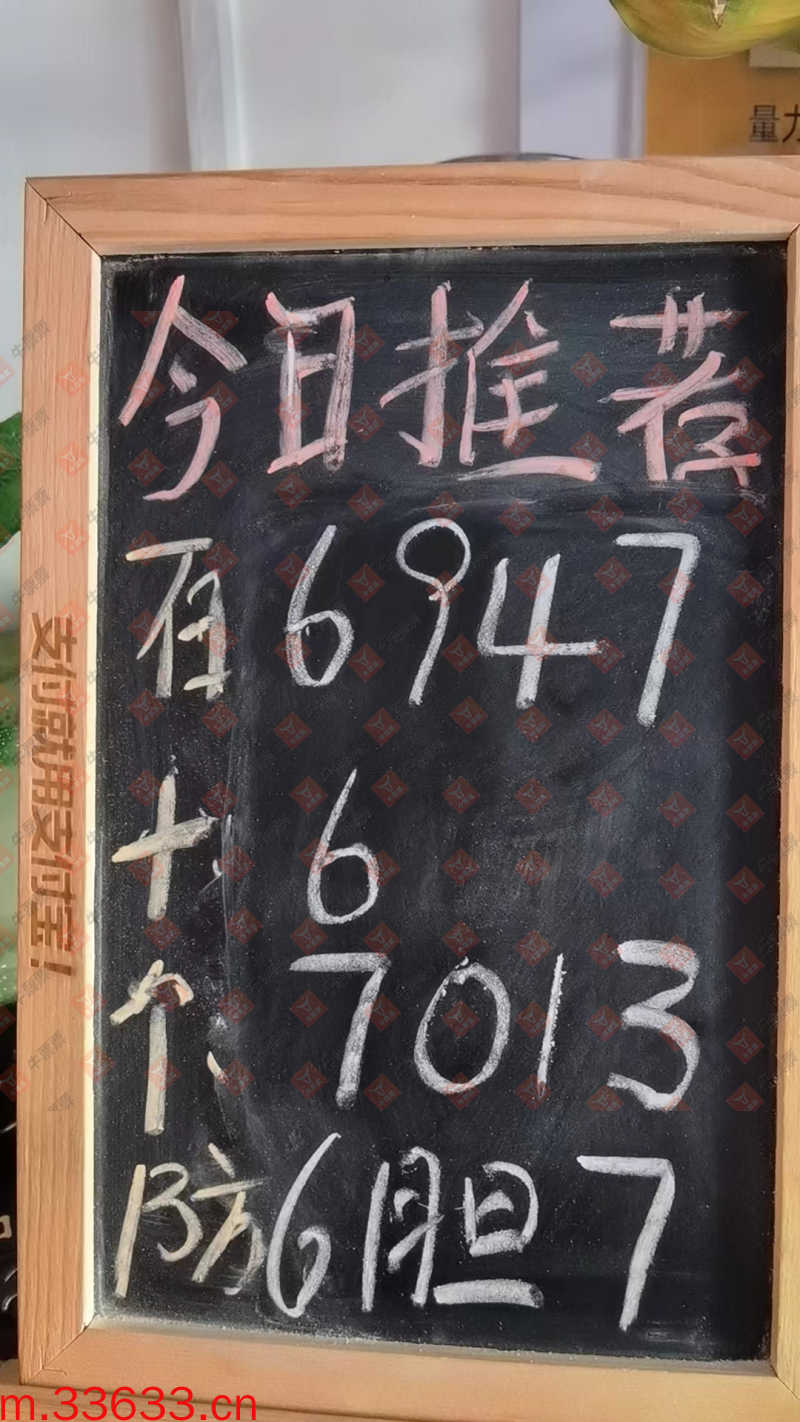 量力
今日推荐
百 6947
十、6
个、7013
防6胆7
支付就用支付宝!
m.33633.cn